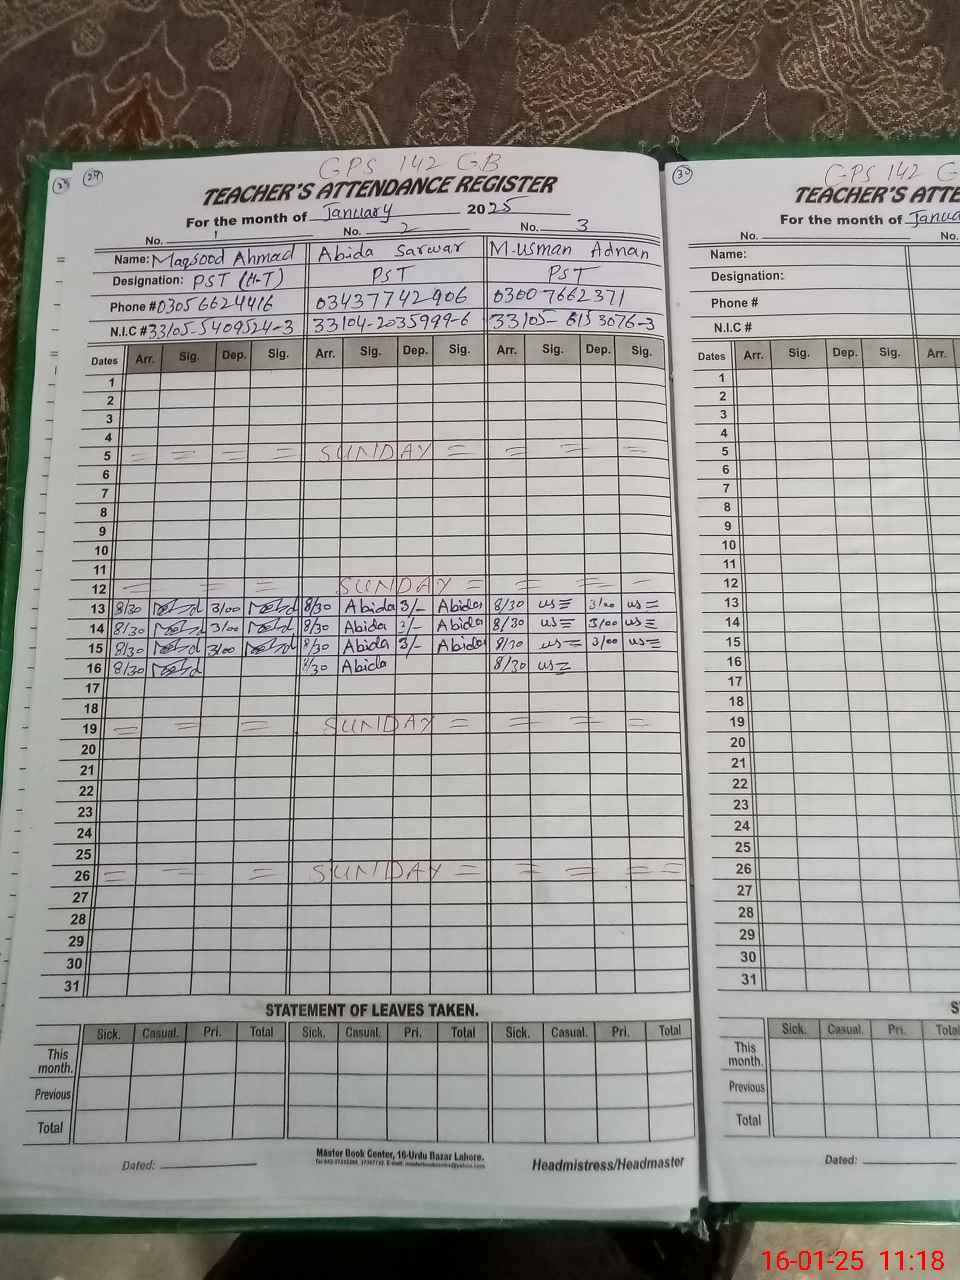 GPS 142 GB
29
TEACHER'S ATTENDANCE REGISTER
For the month of January 2025
No. 1 No. 2 No. 3
Name: Maqsood Ahmad Abida Sarwar M. Usman Adnan
Designation: PST (H-T) PST PST
Phone # 03056624416 03437742906 03007662371
N.I.C # 33105-5409524-3 33104-2035999-6 33105-6153076-3
Dates Arr. Sig. Dep. Sig. Arr. Sig. Dep. Sig. Arr. Sig. Dep. Sig.
1
2
3
4
5 = = = = SUNDAY = = = =
6
7
8
9
10
11
12 = = = SUNDAY = = = =
13 8/30 3/00 8/30 Abida 3/- Abida 8/30 us 3/00 us
14 8/30 3/00 8/30 Abida 3/- Abida 8/30 us 3/00 us
15 8/30 3/00 8/30 Abida 3/- Abida 8/30 us 3/00 us
16 8/30 8/30 Abida 8/30 us
17
18
19 = = = SUNDAY = = = =
20
21
22
23
24
25
26 = = = SUNDAY = = = = =
27
28
29
30
31
STATEMENT OF LEAVES TAKEN.
Sick. Casual. Pri. Total Sick. Casual. Pri. Total Sick. Casual. Pri. Total
This month.
Previous
Total
Dated:
Master Book Center, 16-Urdu Bazar Lahore.
Headmistress/Headmaster
30
GPS 142 G
TEACHER'S ATTE
For the month of Janua
No. No.
Name:
Designation:
Phone #
N.I.C #
Dates Arr. Sig. Dep. Sig. Arr.
1
2
3
4
5
6
7
8
9
10
11
12
13
14
15
16
17
18
19
20
21
22
23
24
25
26
27
28
29
30
31
S
Sick. Casual. Pri. Total
This month.
Previous
Total
Dated:
16-01-25 11:18